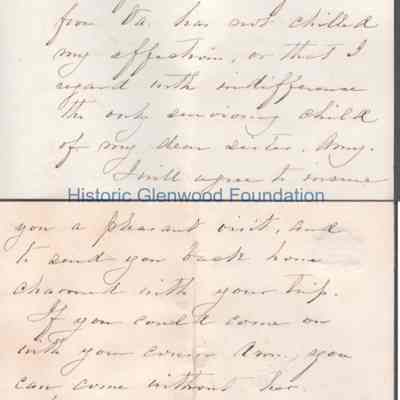 from Va. has not chilled
my affection, or that I
regard with indifference
the only surviving child
of my dear sister, Amy.
I will agree to insure
Historic Glenwood Foundation
you a pleasant visit, and
to send you back home
charmed with your trip.
If you could come on
with you cousin Ann, you
can come without her.